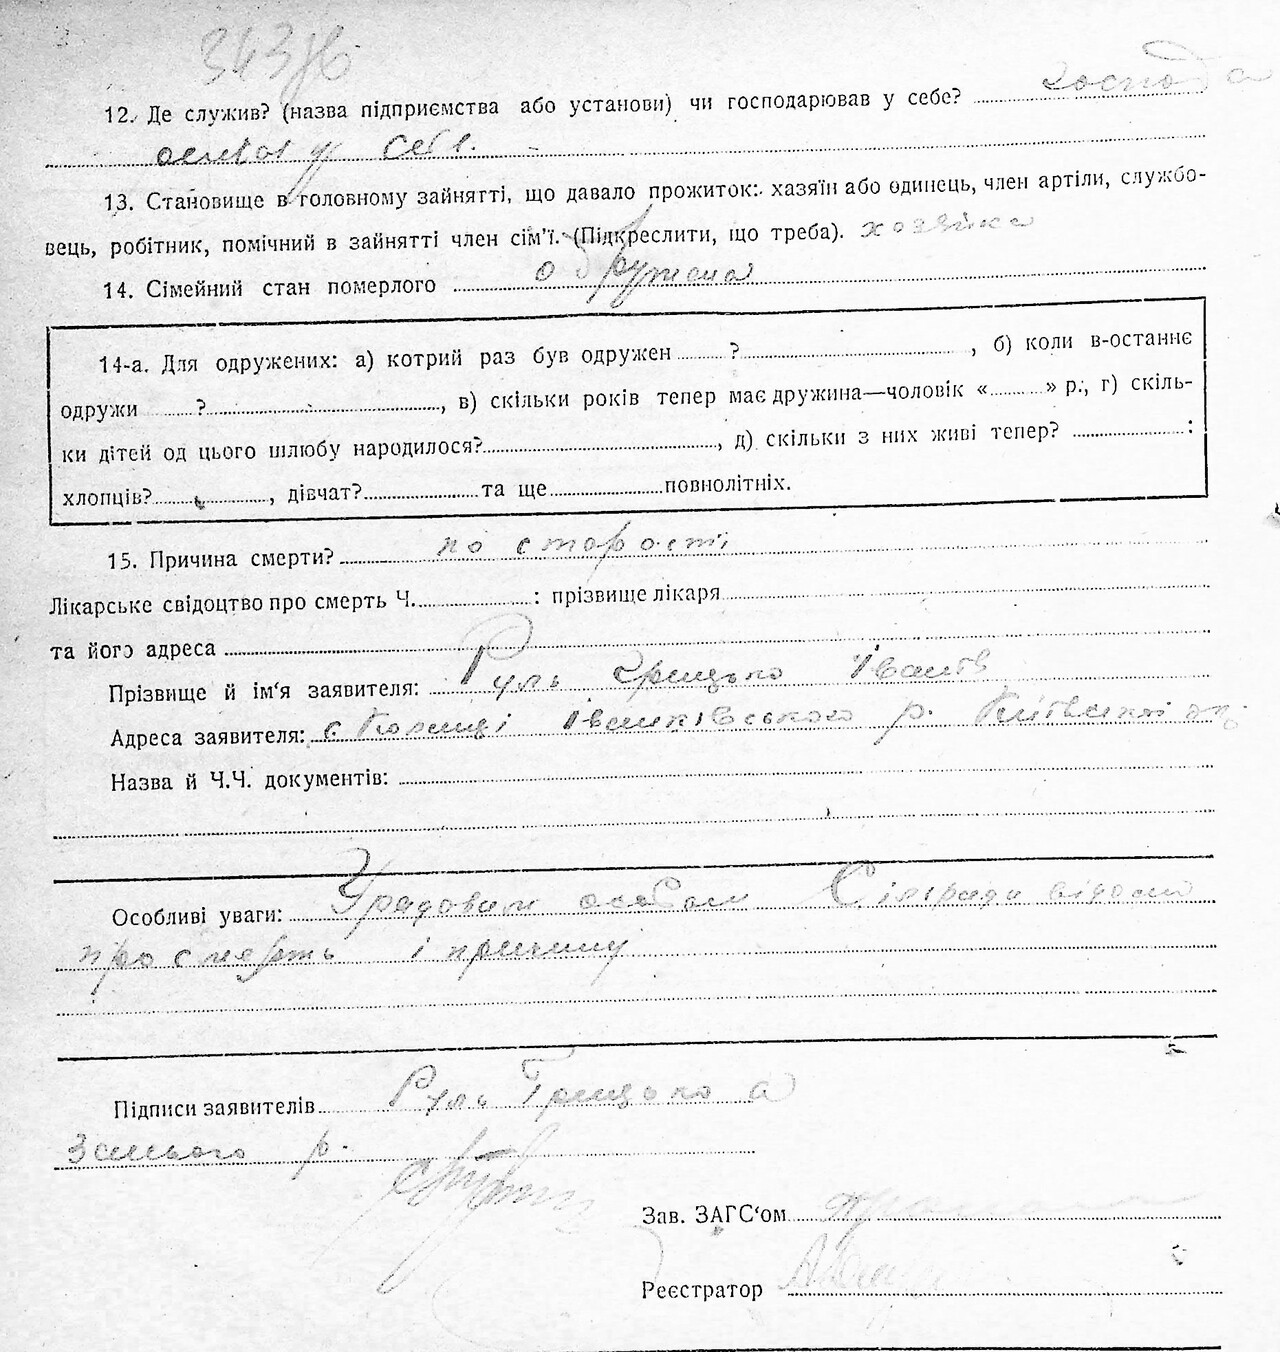 343
12. Де служив? (назва підприємства або установи) чи господарював у себе? господа
у себе.
13. Становище в головному зайнятті, що давало прожиток: хазяїн або одинець, член артіли, службо-
вець, робітник, помічний в зайнятті член сім'ї. (Підкреслити, що треба). хозяйка
14. Сімейний стан померлого одружена
14-а. Для одружених: а) котрий раз був одружен ?, б) коли в-останнє
одружи ?, в) скільки років тепер має дружина—чоловік « » р., г) скіль-
ки дітей од цього шлюбу народилося?, д) скільки з них живі тепер? :
хлопців?, дівчат? та ще повнолітніх.
15. Причина смерти? по старості
Лікарське свідоцтво про смерть Ч. : прізвище лікаря
та його адреса
Прізвище й ім'я заявителя: Руль Грицько
Адреса заявителя: с Іванківського р.
Назва й Ч.Ч. документів:
Особливі уваги: Урадовим особам Сільради відомо
про смерть і причину
Підписи заявителів Руль Грицько а
За нього р.
Зав. ЗАГС'ом
Реєстратор